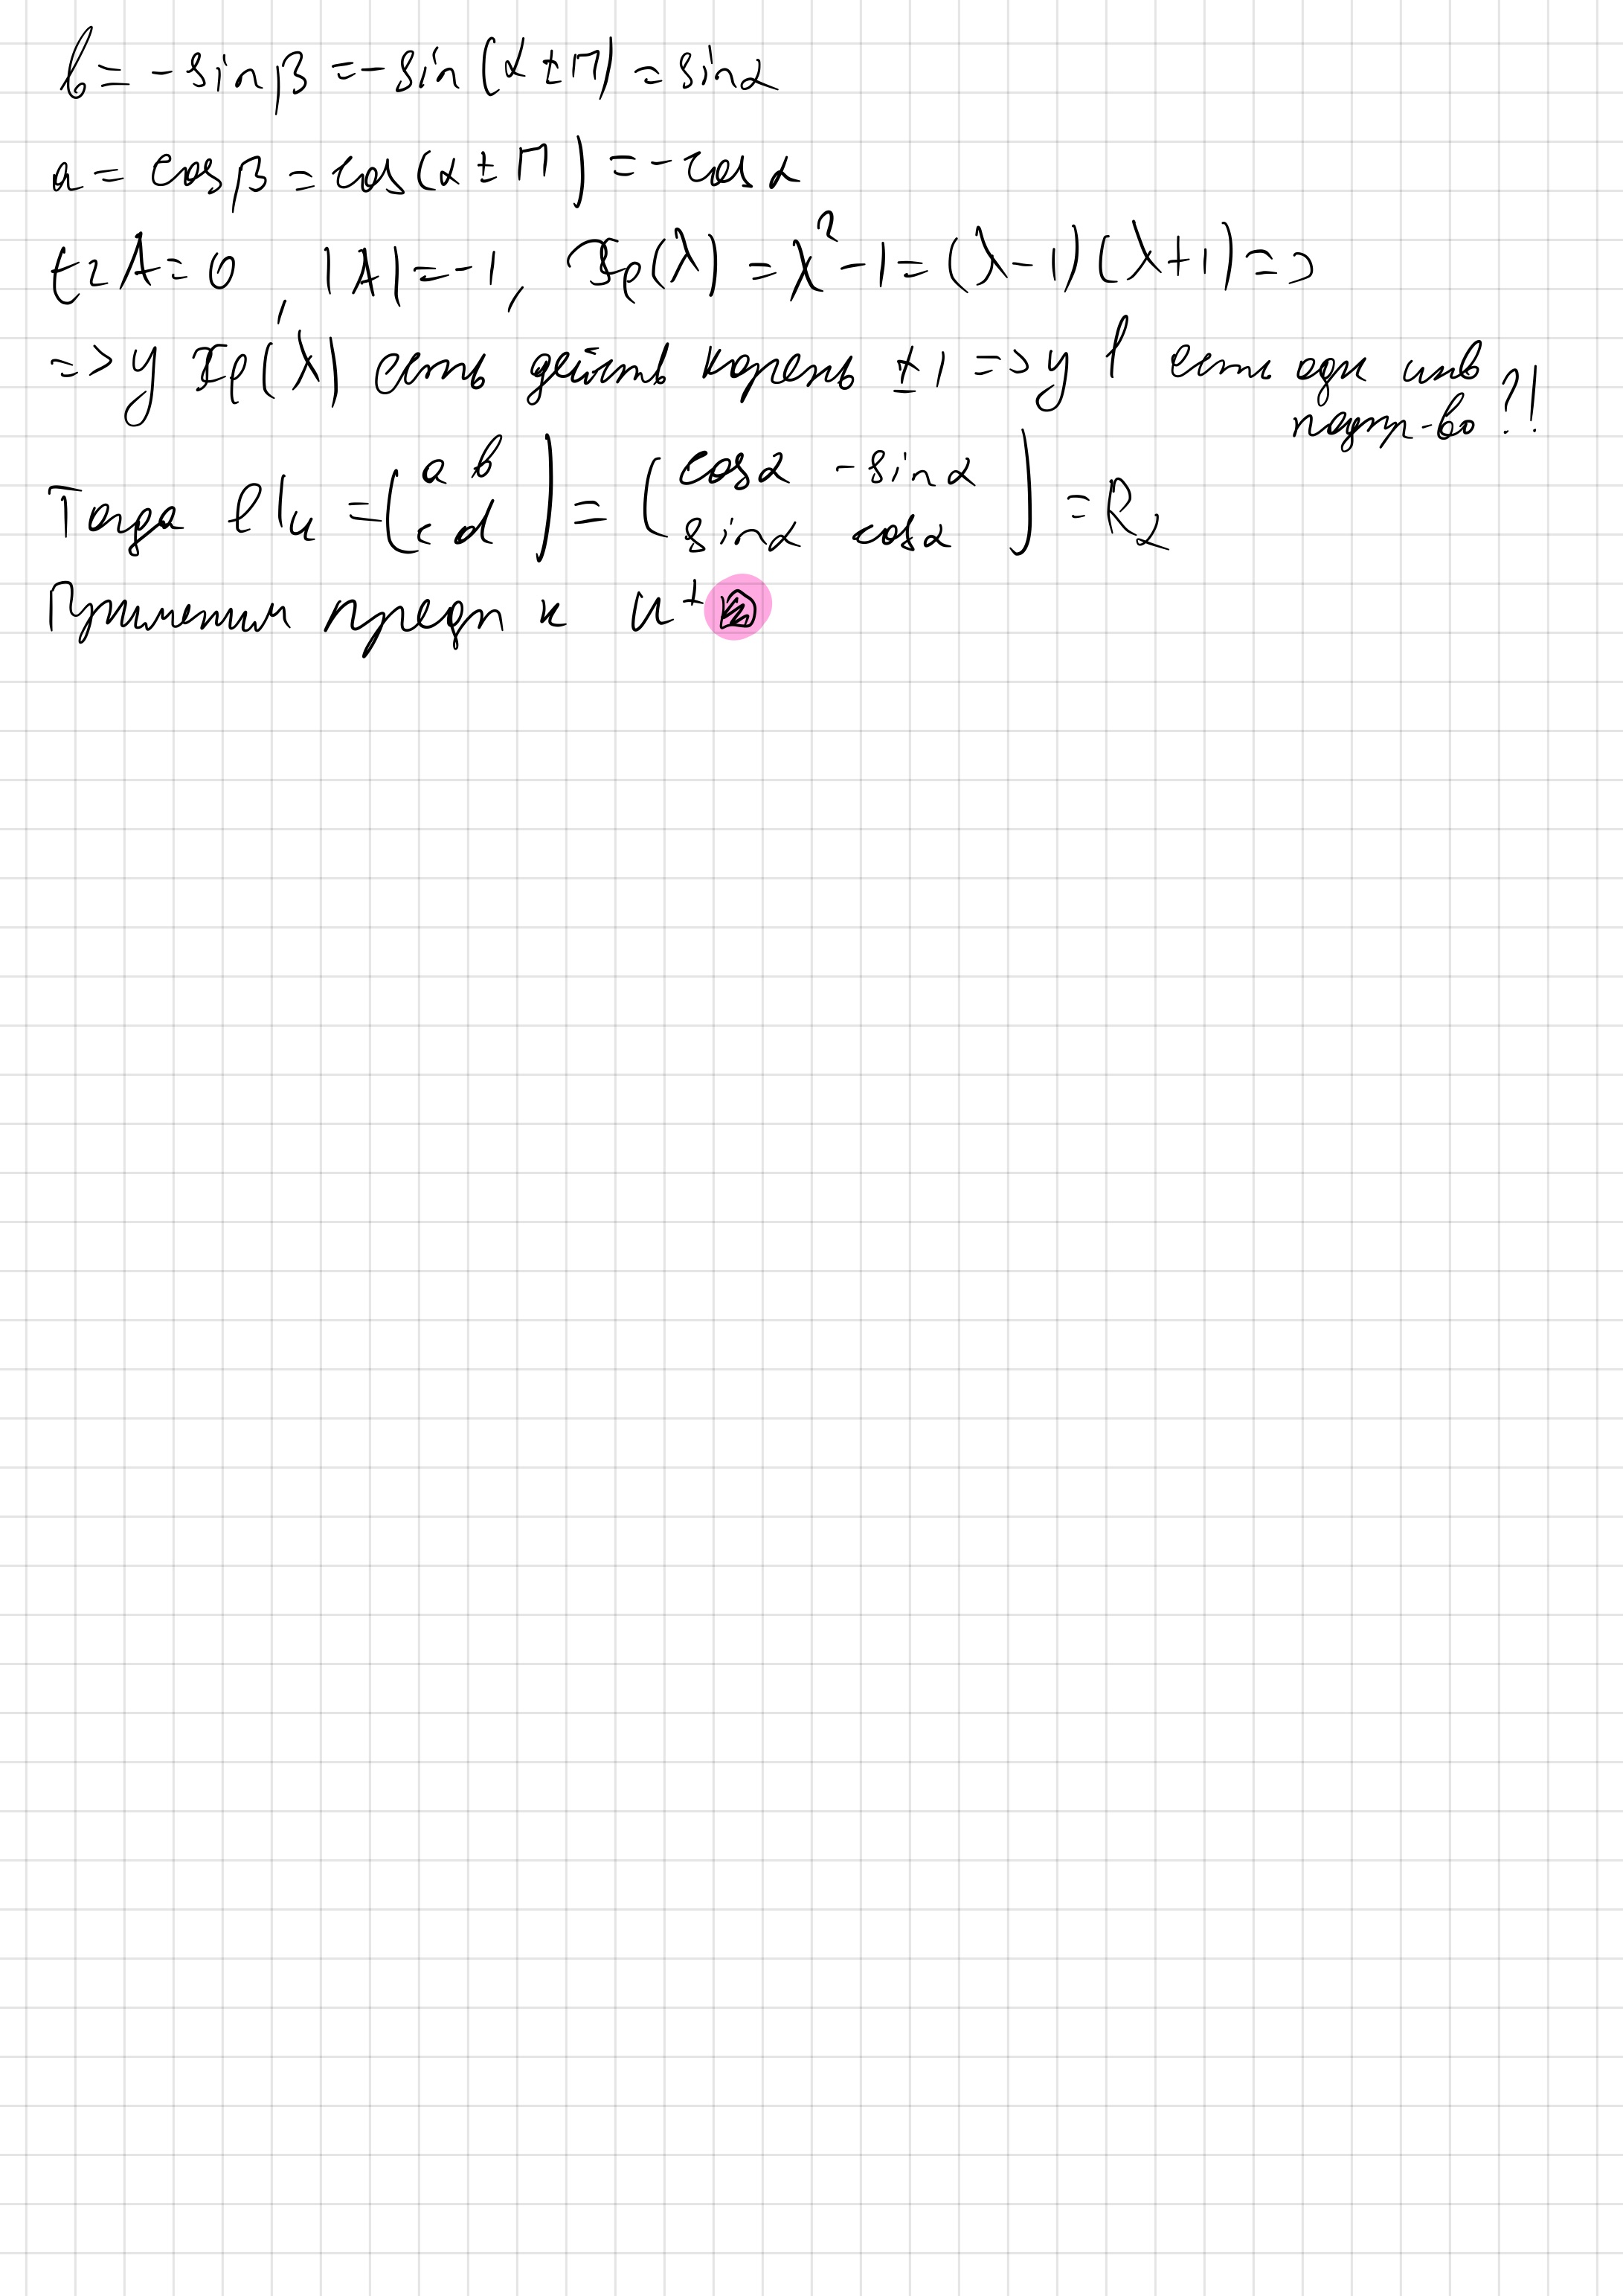 b = -sin β = -sin(α ± π) = sin α
a = cos β = cos(α ± π) = -cos α
tr A = 0, |A| = -1, χφ(λ) = λ² - 1 = (λ-1)(λ+1) =>
=> у χφ(λ) есть действ корень ±1 => у f есть одн инв
подпр-во?!
Тогда φ|u = (a b c d) = (cos α -sin α sin α cos α) = Rα
Применим предп к u⊥